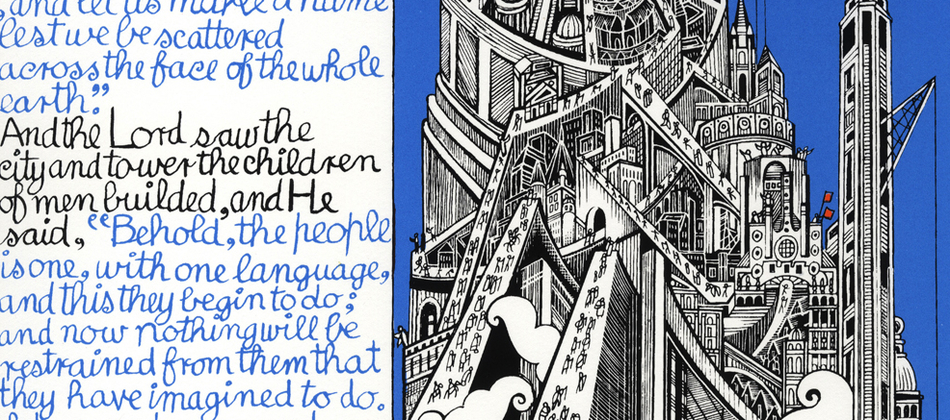 , and let us make a name
lest we be scattered
across the face of the whole
earth."
And the Lord saw the
city and tower the children
of men builded, and He
said, "Behold, the people
is one, with one language,
and this they begin to do;
and now nothing will be
restrained from them that
they have imagined to do.